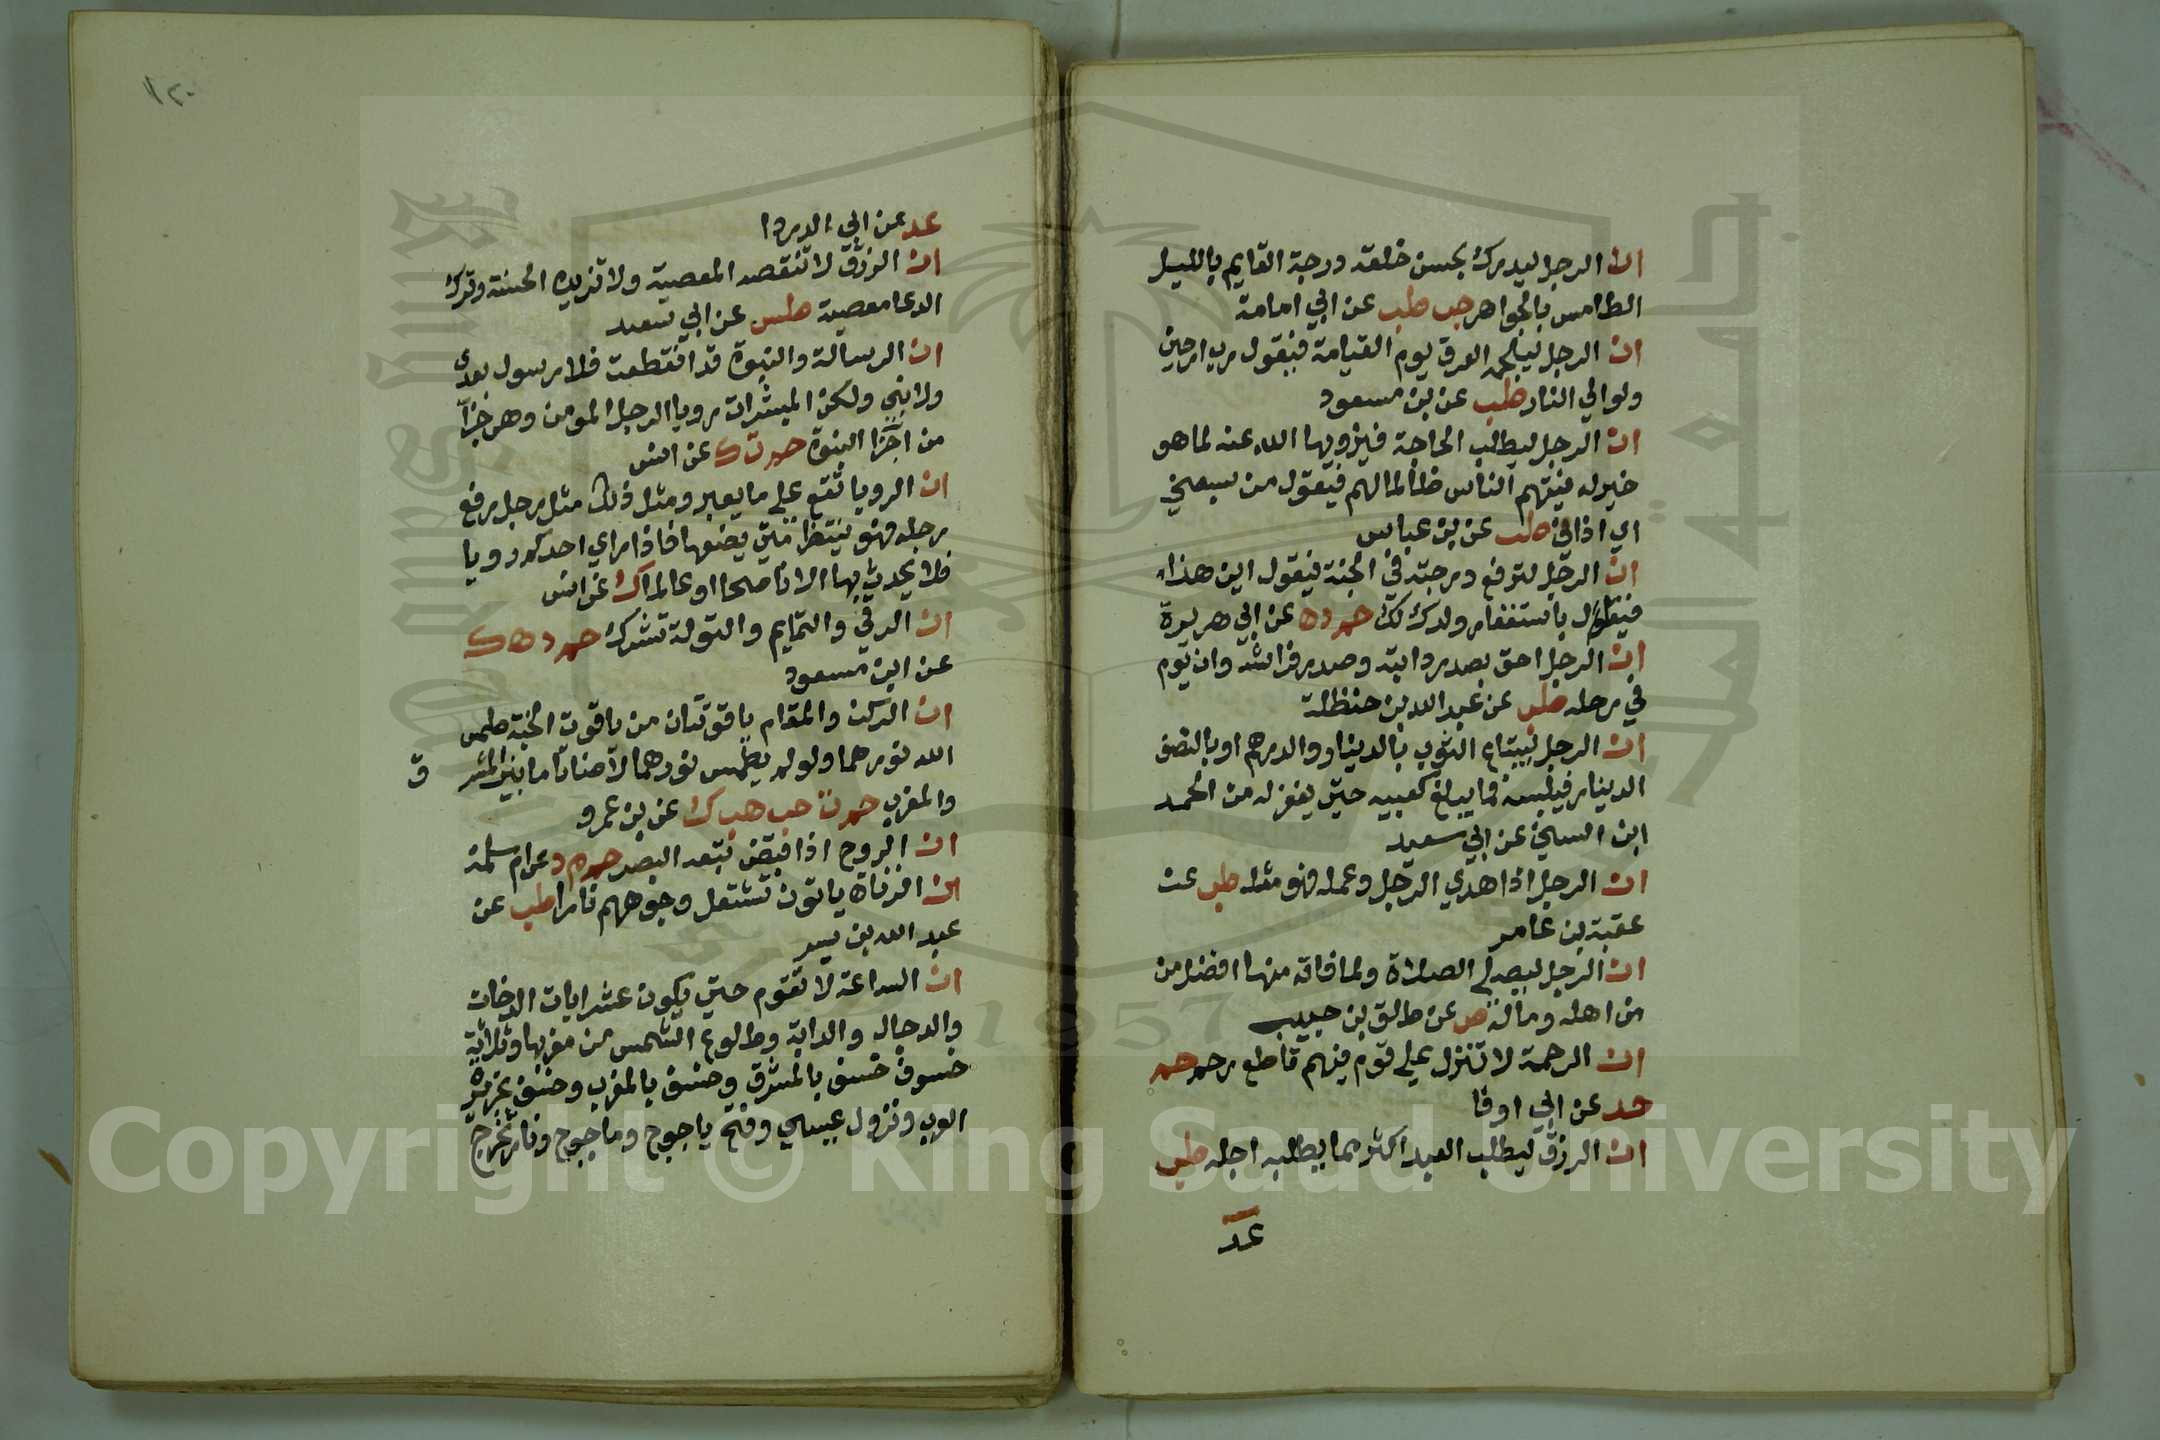 ان الرجل ليدرك بحسن خلقه درجة القايم بالليل
الظامي بالهواجر حب طب عن ابي امامة
ان الرجل ليلجمه العرق يوم القيامة فيقول رب ارحني
ولو الي النار طب عن بن مسعود
ان الرجل ليطلب الحاجة فيزويها الله عنه لما هو
خير له فيتهم الناس ظالما لهم فيقول من سبعني
طب عن بن عباس
ان الرجل لترفع درجته في الجنة فيقول اني هذا
فيقال باستغفار ولدك لك حم ه عن ابي هريرة
ان الرجل احق بصدر دابته وصدر فراشه وان يوم
في رحله طب عن عبد الله بن حنظلة
ان الرجل ليبتاع الثوب بالدينار والدرهم او بالنصف
الدينار فيلبسه فما يبلغ كعبيه حتي يغفر له من الحمد
ابن السني عن ابي سعيد
ان الرجل اذا هدي الرجل وعمله فهو مثله طب عن
عقبة بن عامر
ان الرجل ليصلي الصلاة ولما فاته منها افضل من
من اهله وماله ص عن طلق بن حبيب
ان الرحمة لا تنزل علي قوم فيهم قاطع رحم
خد عن ابي اوفا
ان الرزق ليطلب العبد اكثر مما يطلبه اجله طب
عد
١٢٠
عد عن ابي الدردا
ان الرزق لا تنقصه المعصية ولا تزيده الحسنة وترك
الدعا معصية طس عن ابي سعيد
ان الرسالة والنبوة قد انقطعت فلا رسول بعدي
ولا نبي ولكن المبشرات رويا الرجل المومن وهي جزأ
من اجزا النبوة حم ت ك عن انس
ان الرويا تقع علي ما يعبر ومثل ذلك مثل رجل رفع
رجله فهو ينتظر متي يضعها فاذا راي احدكم رويا
فلا يحدث بها الا ناصحا او عالما ك عن انس
ان الرقي والتمايم والتولة شرك حم د ه ك
عن ابن مسعود
ان الركن والمقام ياقوتتان من ياقوت الجنة طمس
الله نورهما ولو لم يطمس نورهما لاضاتا ما بين المشر
ق
والمغرب حم ت حب هب ك عن بن عمرو
ان الروح اذا قبض تبعه البصر حم م د عن ام سلمة
ان الزناة ياتون تشتعل وجوههم نارا طب عن
عبد الله بن بسر
ان الساعة لا تقوم حتي يكون عشر ايات الدخان
والدجال والدابة وطلوع الشمس من مغربها وثلاثة
خسوف خسف بالمشرق وخسف بالمغرب وخسف بجزيرة
العرب ونزول عيسي وفتح ياجوج وماجوج ونار تخرج
1957
Copyright © King Saud University